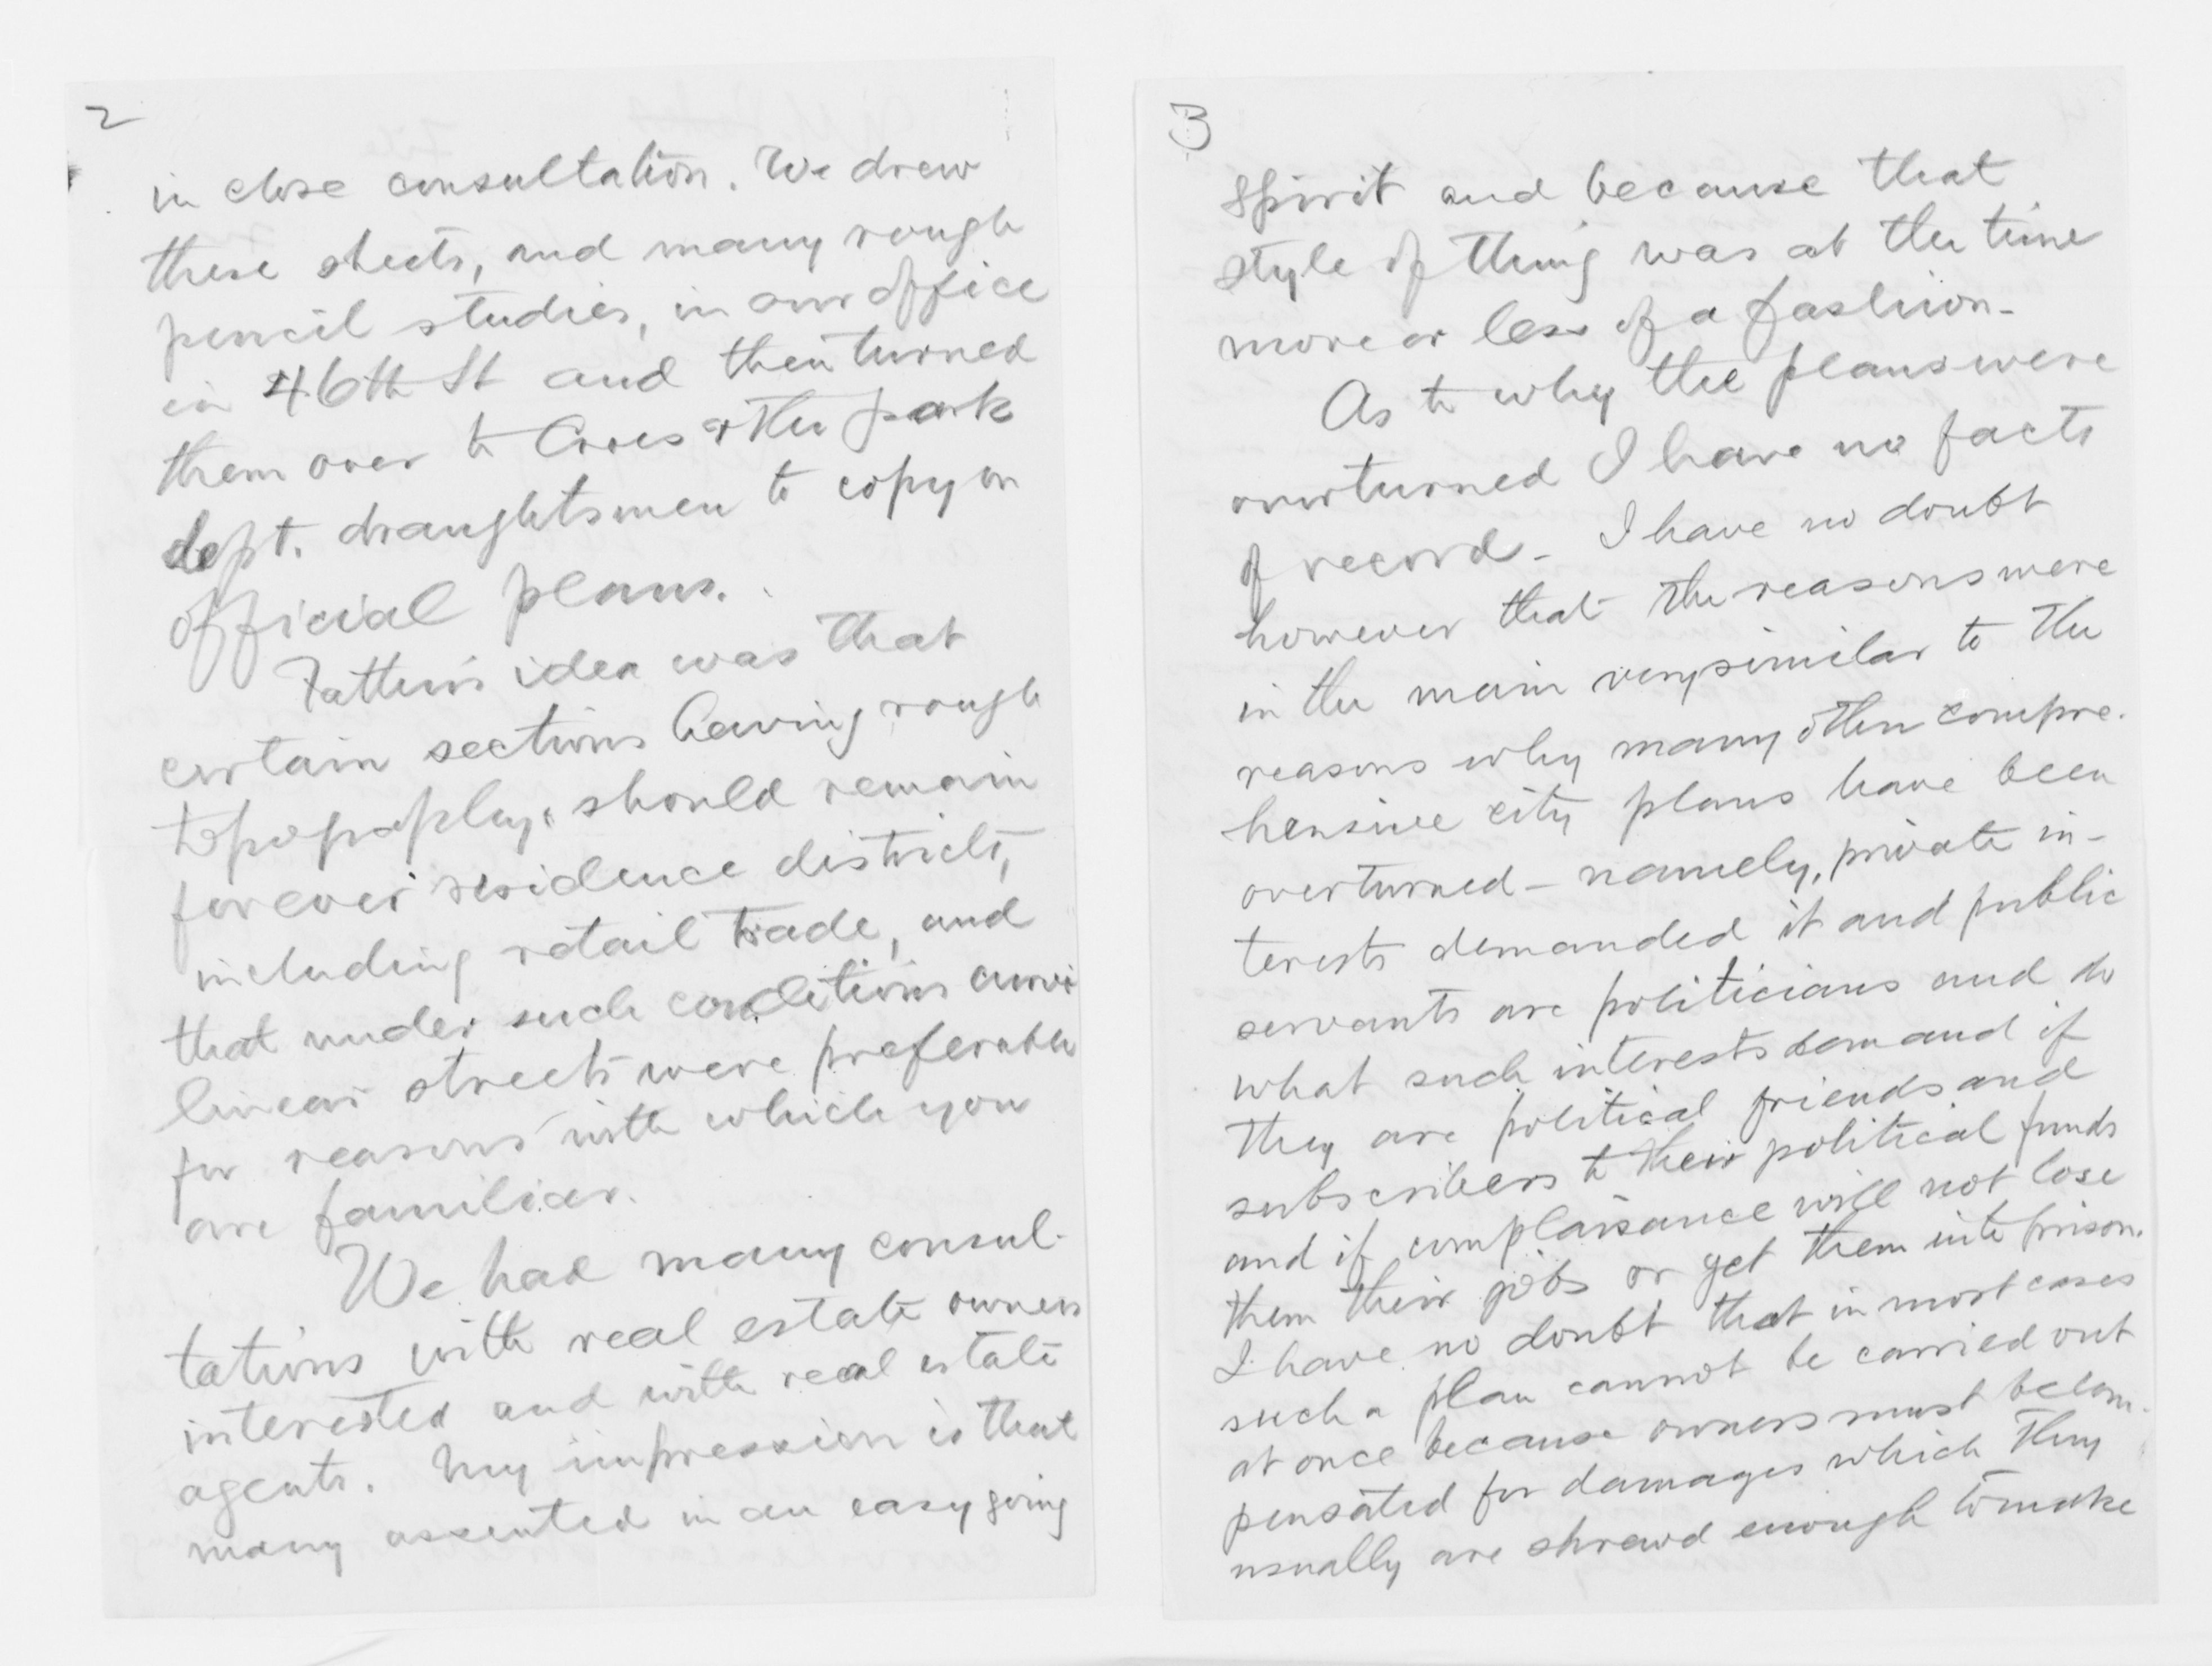 2
in close consultation. We drew
these sheets, and many rough
pencil studies, in our office
in 46th St and then turned
them over to Croes & the park
dept. draughtsmen to copy on
official plans.
Father's idea was that
certain sections having rough
topography, should remain
forever residence districts,
including retail trade, and
that under such conditions curvi
linear streets were preferable
for reasons with which you
are familiar.
We had many consul-
tations with real estate owners
interested and with real estate
agents. My impression is that
many assented in an easy going
3
spirit and because that
style of thing was at the time
more or less of a fashion-
As to why the plans were
overturned I have no facts
of record- I have no doubt
however that the reasons were
in the main very similar to the
reasons why many other compre-
hensive city plans have been
overturned - namely, private in-
terests demanded it and public
servants are politicians and do
what such interests demand if
they are political friends and
subscribers to their political funds
and if complaisance will not lose
them their jobs or get them into prison.
I have no doubt that in most cases
such a plan cannot be carried out
at once because owners must be com-
pensated for damages which they
usually are shrewd enough to make